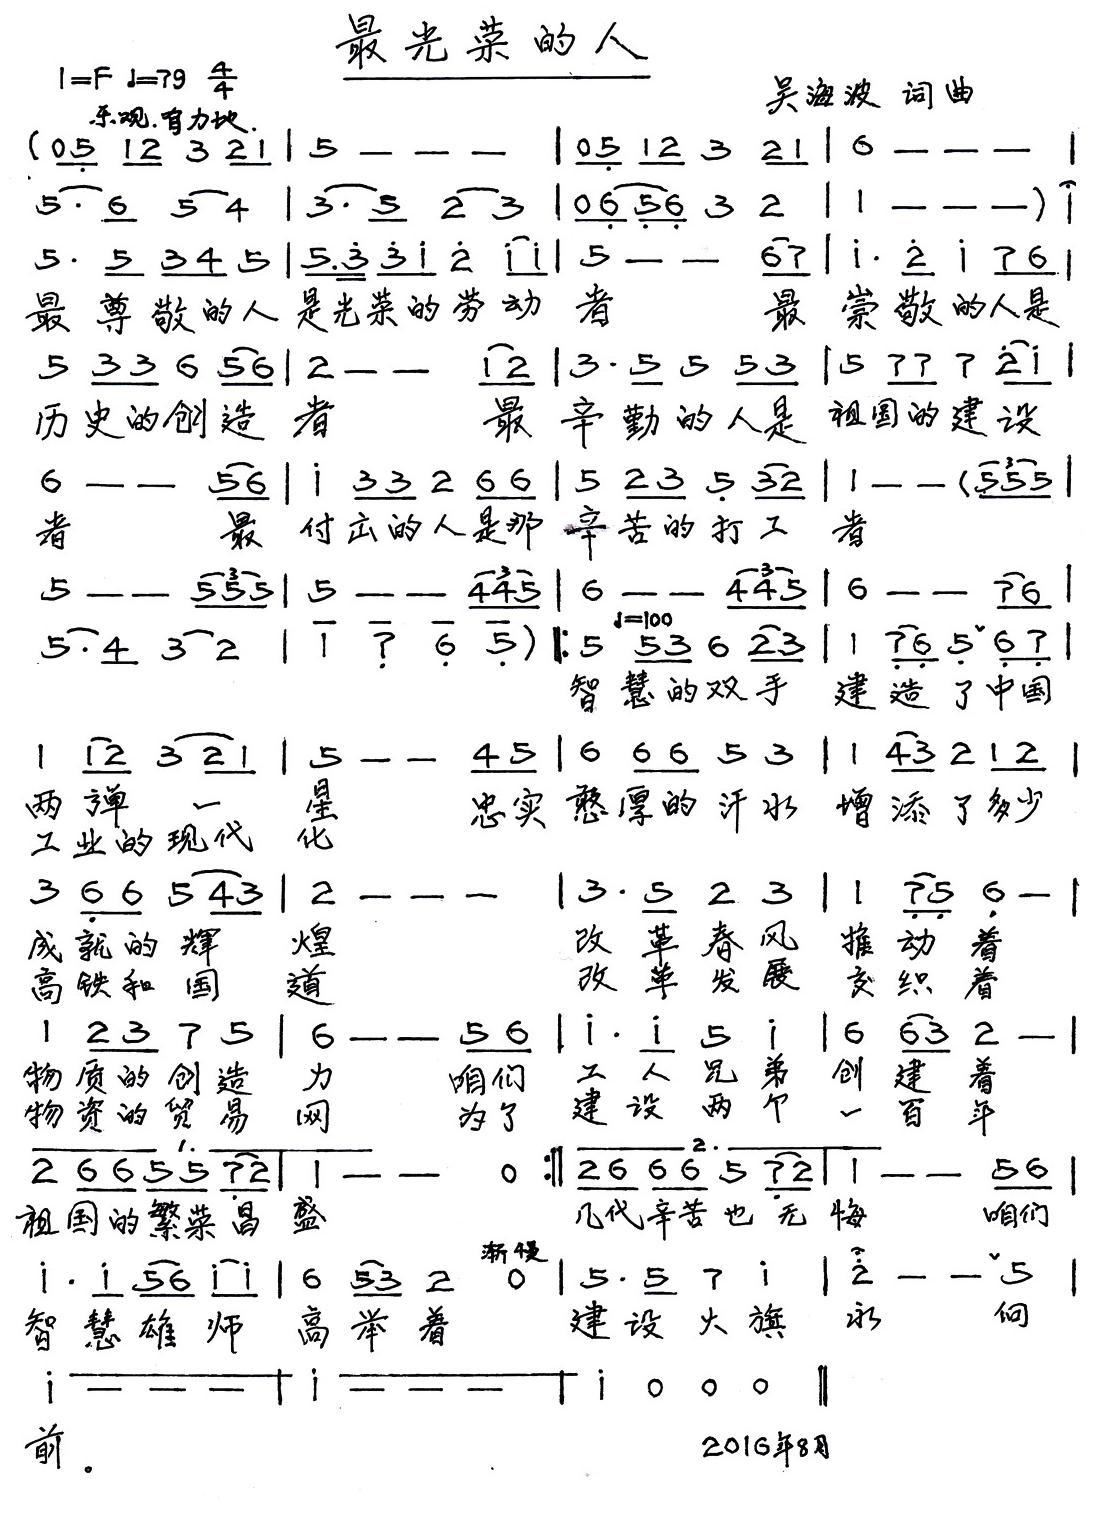 最光荣的人
1=F ♩=79 4/4
乐观.有力地.
吴海波 词曲
(05 12 3 21 | 5 — — — | 05 12 3 21 | 6 — — — |
5· 6 5 4 | 3· 5 2 3 | 06 56 3 2 | 1 — — — ) i
5· 5 34 5 | 5.3 3i 2 ii | 5 — — 67 | i· 2 i 76 |
最尊敬的人 是光荣的劳动 者 最 崇敬的人是
5 33 6 56 | 2 — — i2 | 3· 5 5 53 | 5 77 7 2i |
历史的创造 者 最 辛勤的人是 祖国的建设
6 — — 56 | i 33 2 66 | 5 23 5 32 | 1 — — (555 |
者 最 付出的人是那 辛苦的打工 者
5 — — 555 | 5 — — 445 | 6 — — 445 | 6 — — 76 |
♩=100
5· 4 3 2 | 1 7 6 5 ) ‖: 5 53 6 23 | 1 76 5 ˇ 67 |
智慧的双手 建造了中国
1 12 3 21 | 5 — — 45 | 6 66 5 3 | 1 43 2 12 |
两弹一 星 忠实 憨厚的汗水 增添了多少
工业的现代 化
3 66 5 43 | 2 — — — | 3· 5 2 3 | 1 75 6 — |
成就的辉 煌 改革春风 推动着
高铁和国 道 改革发展 交织着
1 23 7 5 | 6 — — 56 | i· i 5 i | 6 63 2 — |
物质的创造 力 咱们 工人兄弟 创建着
物资的贸易 网 为了 建设两个 一百年
1. 2.
2 66 55 72 | 1 — — 0 :‖ 26 66 5 72 | 1 — — 56 |
祖国的繁荣昌 盛 几代辛苦也无 悔 咱们
渐慢
i· i 56 ii | 6 53 2 0 | 5· 5 7 i | 2 — — ˇ 5 |
智慧雄师 高举着 建设大旗 永 向
i — — — | i — — — | i 0 0 0 ‖
前。
2016年8月